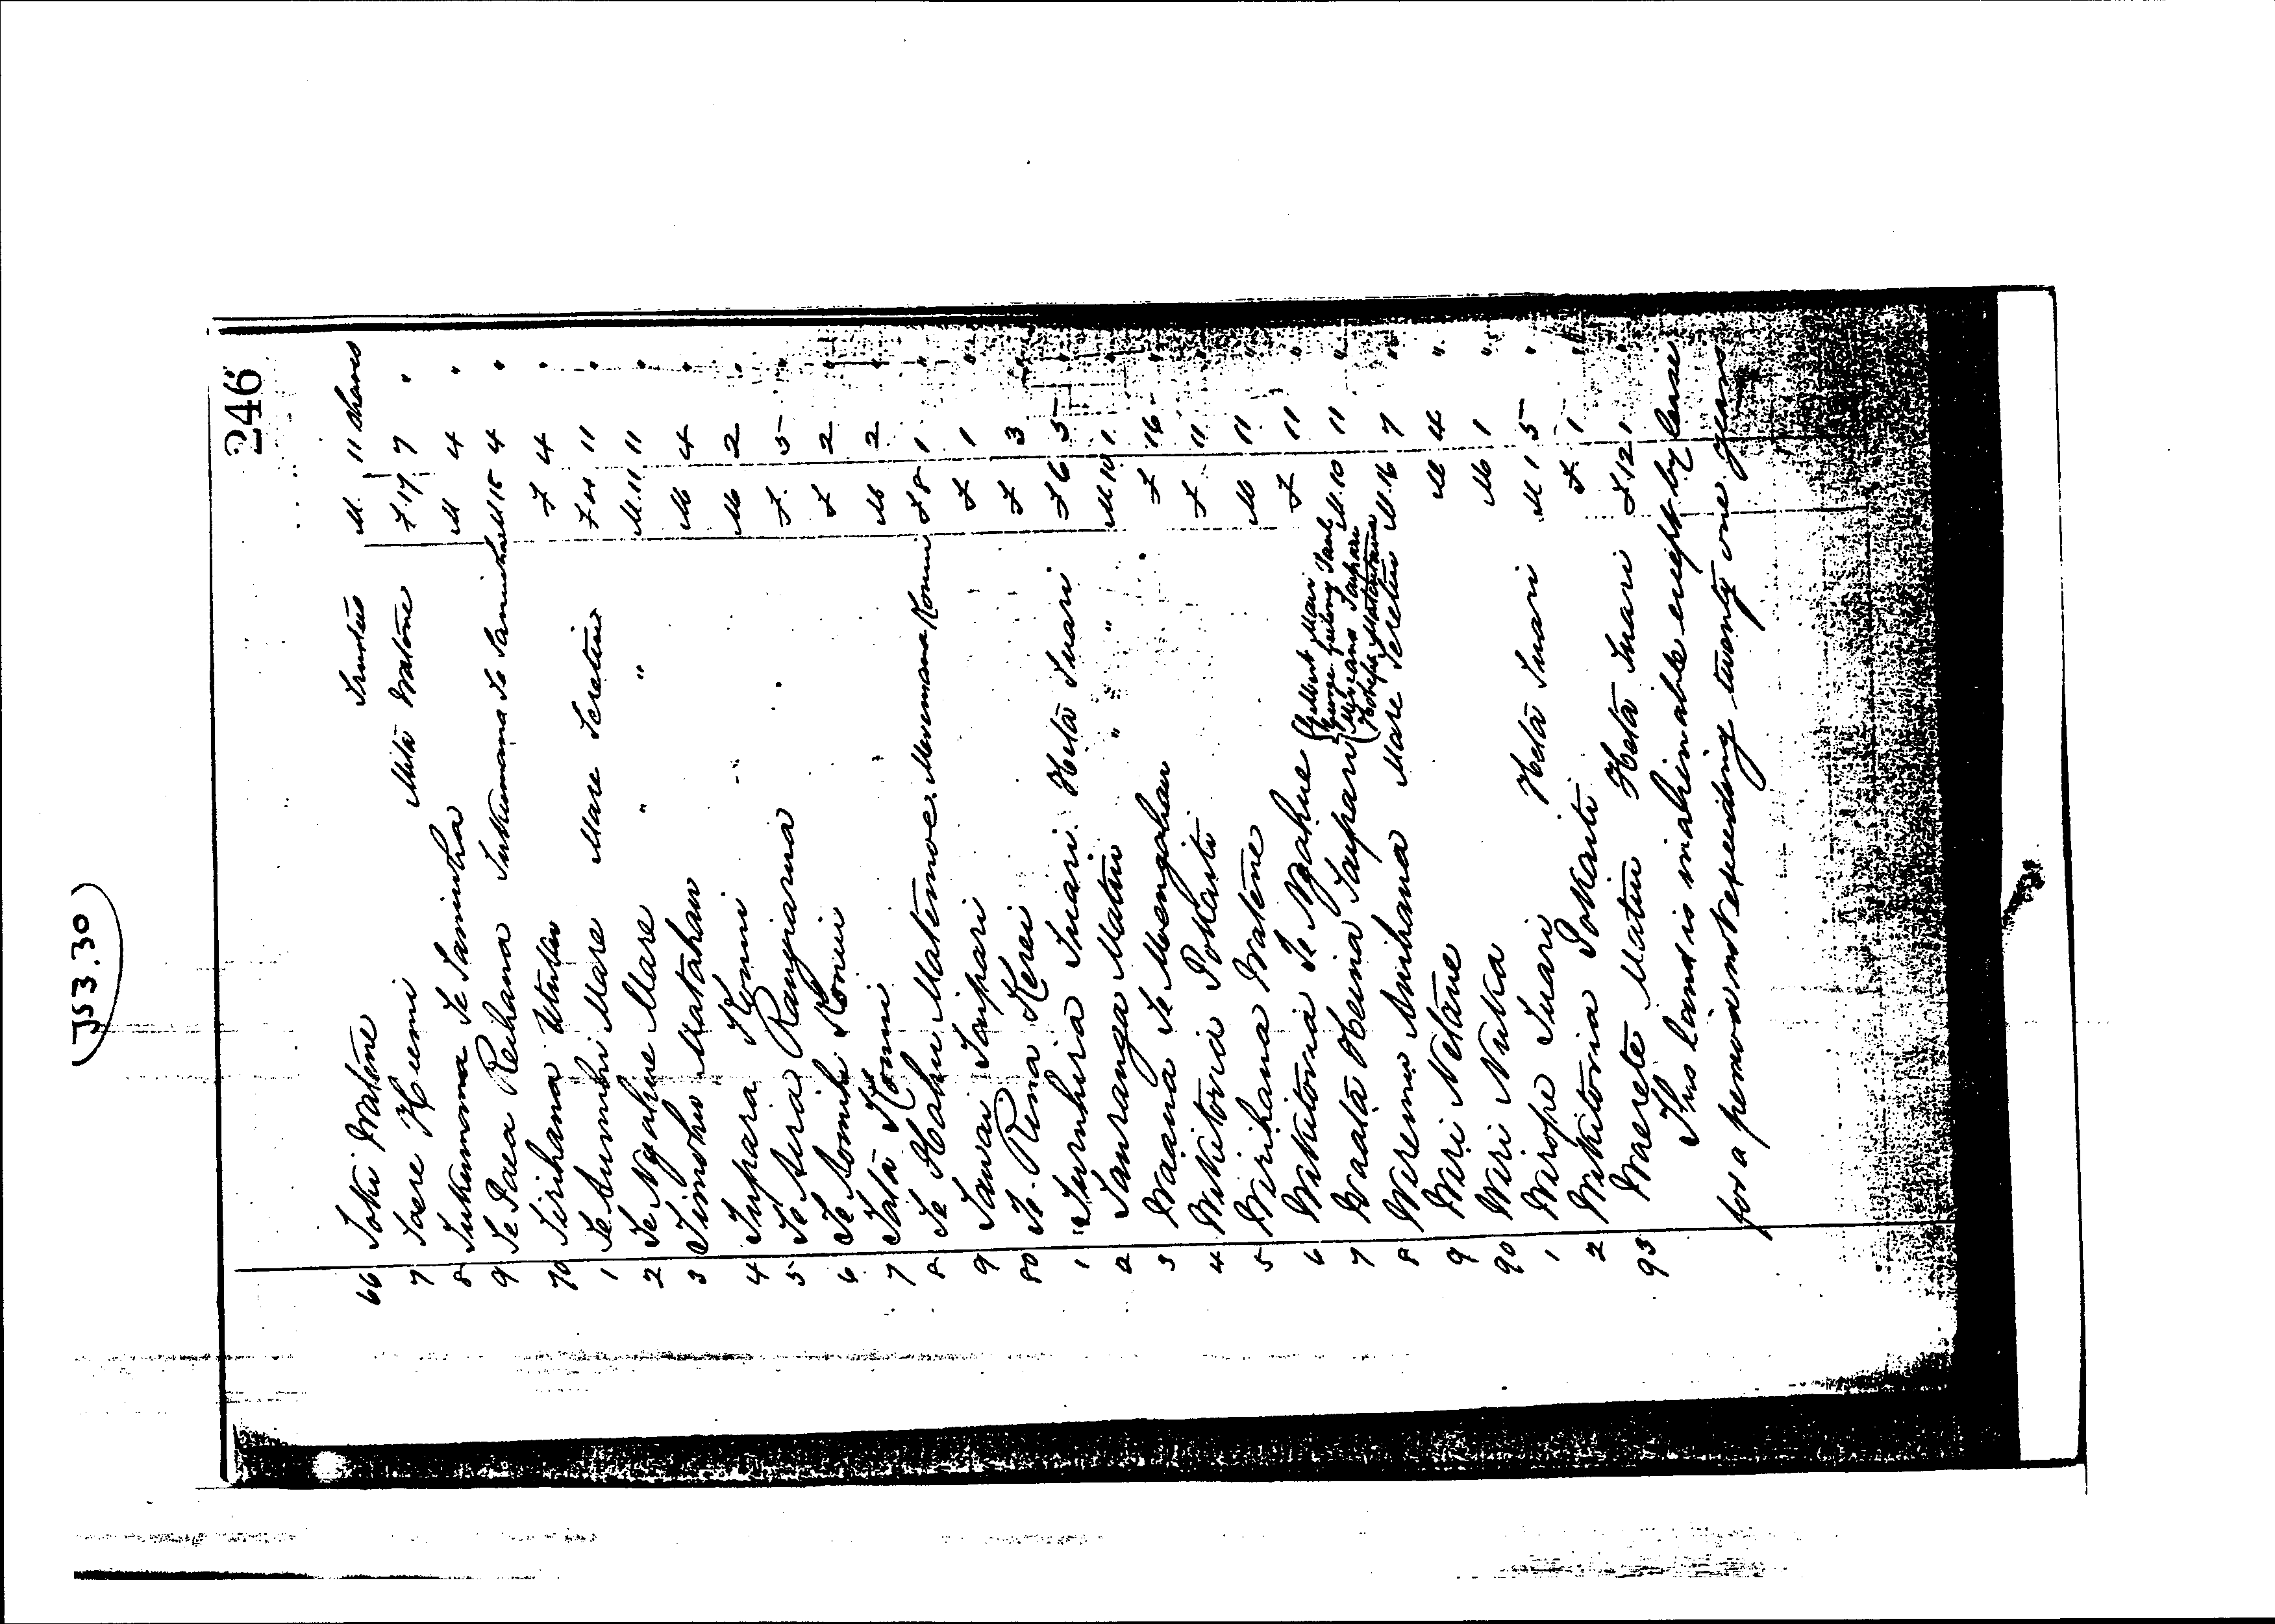 (JS3.30)
246
Trustees
66 Toki Watene M. 11 shares
7 Taere Huimi Mita Watene F 17 7 "
8 Tukumana Te Taniwha M 4 "
9 Te Paea Reihana Tukumana Te Taniwha M 15 4 "
70 Tirihana F 4 "
1 Te Aumihi Mare Mare Teretiu F 4 11 "
2 Te Ngahue Mare " " M. 11 11 "
3 Timohu Matahau M 4 "
4 Tupara Komi M 2 "
5 Te Aira Rangiarua F. 5 "
6 Te Aomihi Komi F 2 "
7 Tata Komi M 2 "
8 Te Hoahu Matemoe Meremana Komi F 8 1 "
9 Tawau Taipari F 1 "
80 Te Rina Kerei F 3 "
1 Turuhira Tuari Heta Tuari F 6 5 "
2 Tauranga Matiu " " M 10 1 "
3 Waana Te Moengahau F 16 "
4 Wikitoria Pokaitu F. 11 "
5 Wirihana Watene M 11 "
6 Wikitoria Te Ngahue F 11 "
7 Waata Heina Taipari M. 10 11 "
{Gilbert Mair
Miriama Taipari
8 Wiremu Anihana Mare Teretiu M. 16 7 "
9 Wiri Netane M 4 "
90 Wiri Nuka M 1 "
1 Wirope Tuari Heta Tuari M 1 5 "
2 Wikitoria Pokaitu F. 1 "
93 Warete Matiu Heta Tuari F. 12 1 "
This land is inalienable except by lease
for a period not exceeding twenty one years